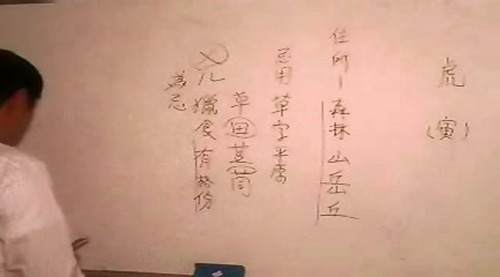 虎
(寅)
住所-森林山岳丘
忌用草字平
草田
獵食有份
為忌